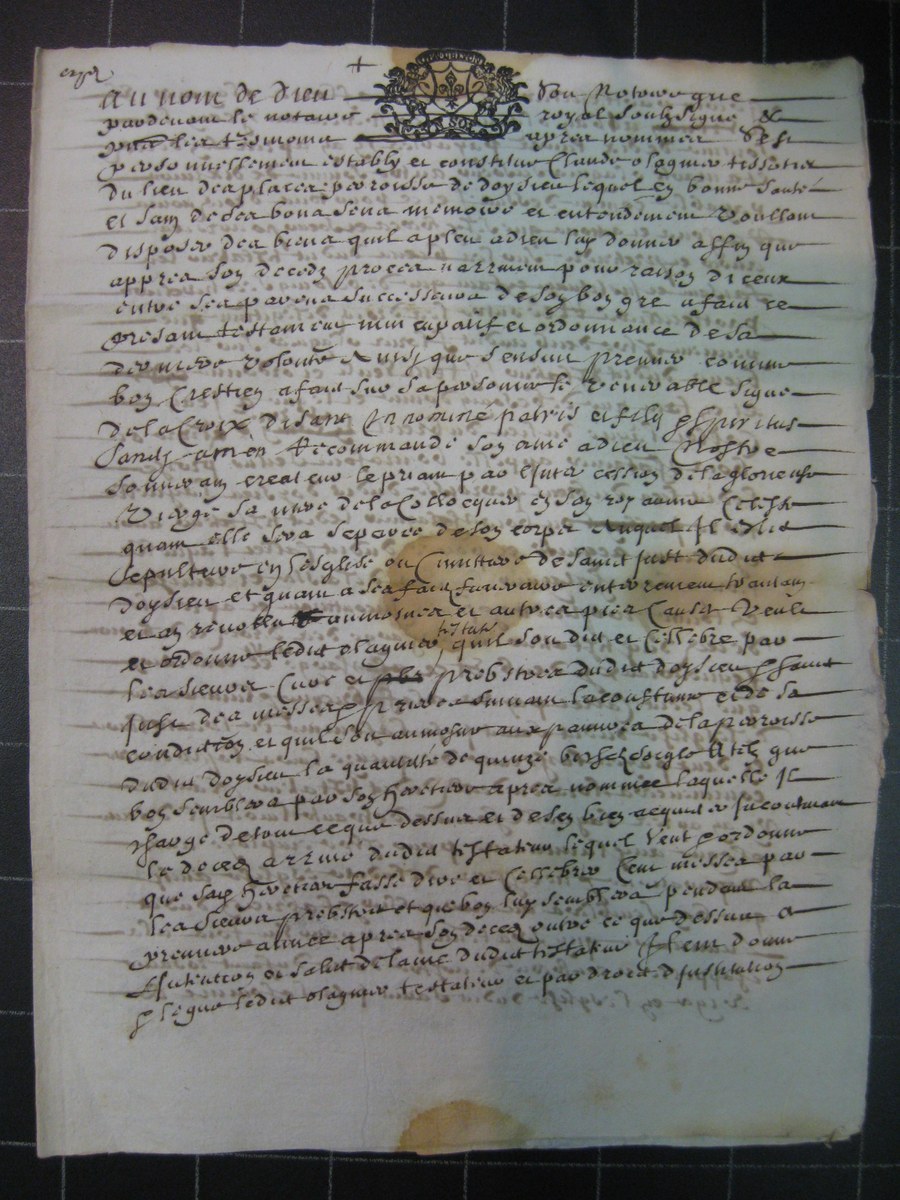 au nom de dieu soit notoire que
pardevant le notaire royal soubsigné &
presents les tesmoins apres nommes s'est
personnellement estably et constitue Claude olagnier tissotier
du lieu des places parroisse de doysieu lequel en bonne santé
et sain de ses bons sens memoire et entendement voullant
disposer des biens quil a pleu a dieu luy donner affin que
appres son deceds proces n'arrivent pour raison diceux
entre ses parens successeurs de son bon gre a faict ce
present testament nuncupatif et ordonnance de sa
derniere volonté ainsy que sensuit premier comme
bon Crestien a faict sur sa personne le venerable signe
de la Croix disant In nomine patris et filij & spiritus
sancti amen Recommandé son ame a dieu Nostre
souverain createur le priant par l'intercession de la glorieuse
Vierge sa mere de la Collocquer en son royaume Celeste
quant elle sera separee de son corps auquel Il eslit
sepulture en l'esglise ou Cimittiere de sainct Just dudict
doysieu et quant a ses faits funeraires enterrement
aumosnes et autres pies Causes veult
et ordonne ledict olagnier testateur quil soit dict et Cellebre par
les sieurs Curé et prebstres dudict doysieu
des messes & prieres suivant la coustume et de sa
condition et quil soit aumosné aux pauvres de la parroisse
dudict doysieu la quantité de quinze bichets seigle que
bon semblera par son heretiere apres nommée laquelle Il
charge de tout ce que dessus et de ses biens acquiter Incontinant
le deces arrivé dudict testateur lequel veut & ordonne
que sad heretiere fasse dire et Cellebrer Cent messes par
les sieurs prebstres et que bon luy semblera pendant la
premiere année apres son deces outre ce que dessus a
l'Intention et salut de lame dudict testateur Item donne
& legue ledict olagnier testateur et par droict d'Institution